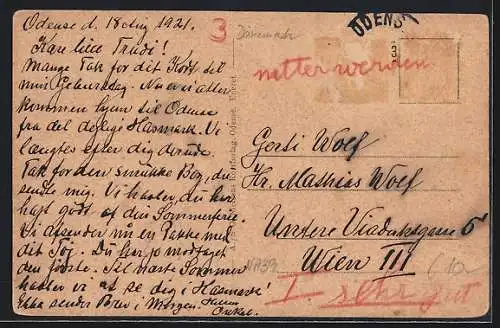 Odense d. 18 Aug 1921.
Kære lille Trudi!
Mange Tak for dit Kort til
min Geburtsdag. Nu er vi alle
kommen hjem til Odense
fra det dejlige Hasmark. Vi
længtes efter dig derude.
Tak for den smukke Bog, du
sendte mig. Vi haaber, du har
haft godt af din Sommerferie.
Vi afsender nu en Pakke med
dit Töj. Du har jo modtaget
den første. Til næste Sommer
haaber vi at se dig i Hasmark!
Ebba sender Brev i Morgen.
Onkel.
3
Dänemark
ODENS
netter werden
Gerti Wolf
Hr. Mathias Wolf
Untere Viaduktgasse 6
Wien III
I sehr gut